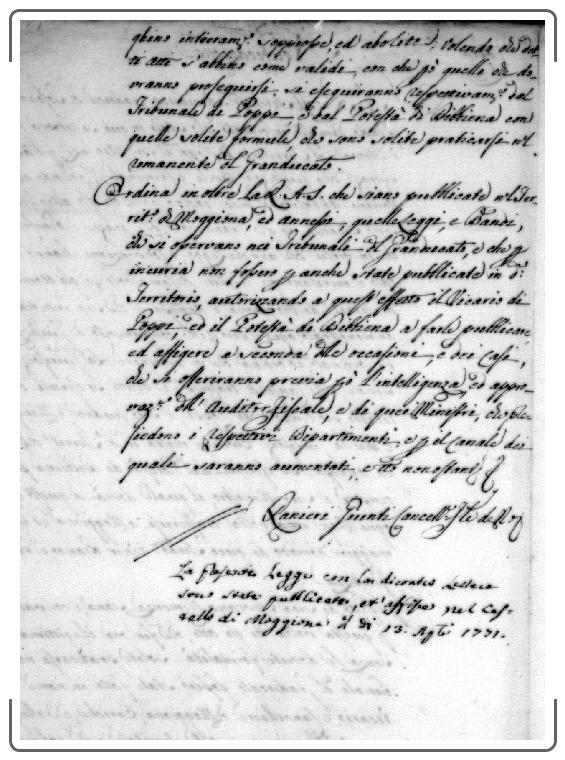 ghino interam.e soppresse, ed abolite; Volendo che det-
ti atti s'abbino come validi, con che p.ò quelle che do-
vranno proseguirsi, si eseguiranno respettivam.e dal
Tribunale di Poppi, e dal Potestà di Bibbiena con
quelle solite formule che sono solite praticarsi n'l
rimanente d'l Granducato.
Ordina in oltre La R. A. S. che siano pubblicate n'l Ter-
rit.o di Moggiona, ed annessi, quelle Leggi, e Bandi,
che si osservano nei Tribunali d'l Granducato, e che p
incuria non fossero p anche state pubblicate in d.o
Territorio, autorizando a quest' effetto il Vicario di
Poppi, ed il Potestà di Bibbiena a farle pubblicare
ed affigere a seconda d'lle occasioni, e dei casi,
che si offeriranno previa p.ò l'intelligenza, ed appro-
vaz.e d'll' Auditor Fiscale, e di quei Ministri, che ple-
siedono i respettivi Dipartimenti, e p il canale dei
quali saranno aumentati, e tto non ostant
Ranieri Giunti Cancell.e
La presente Legge con la dicontro Lettera
sono state pubblicate, et affisse nel Cas-
tello di Moggiona il dì 13. Agto 1771.